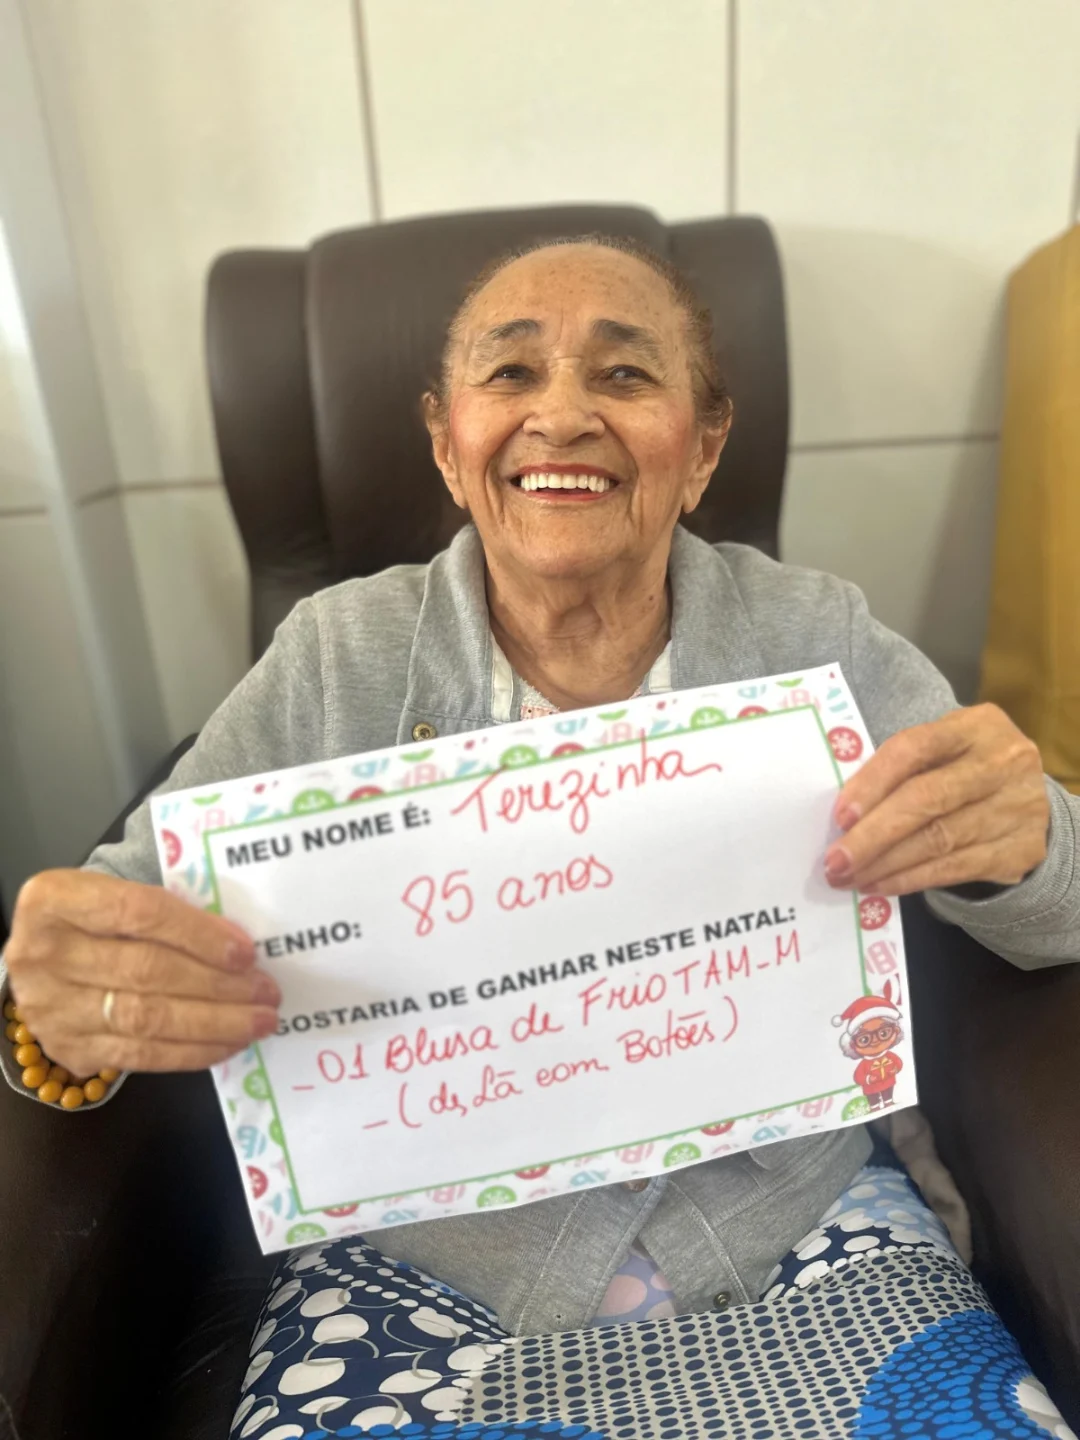 MEU NOME É: Terezinha
TENHO: 85 anos
GOSTARIA DE GANHAR NESTE NATAL:
- 01 Blusa de Frio TAM-M
- (de Lã com Botões)